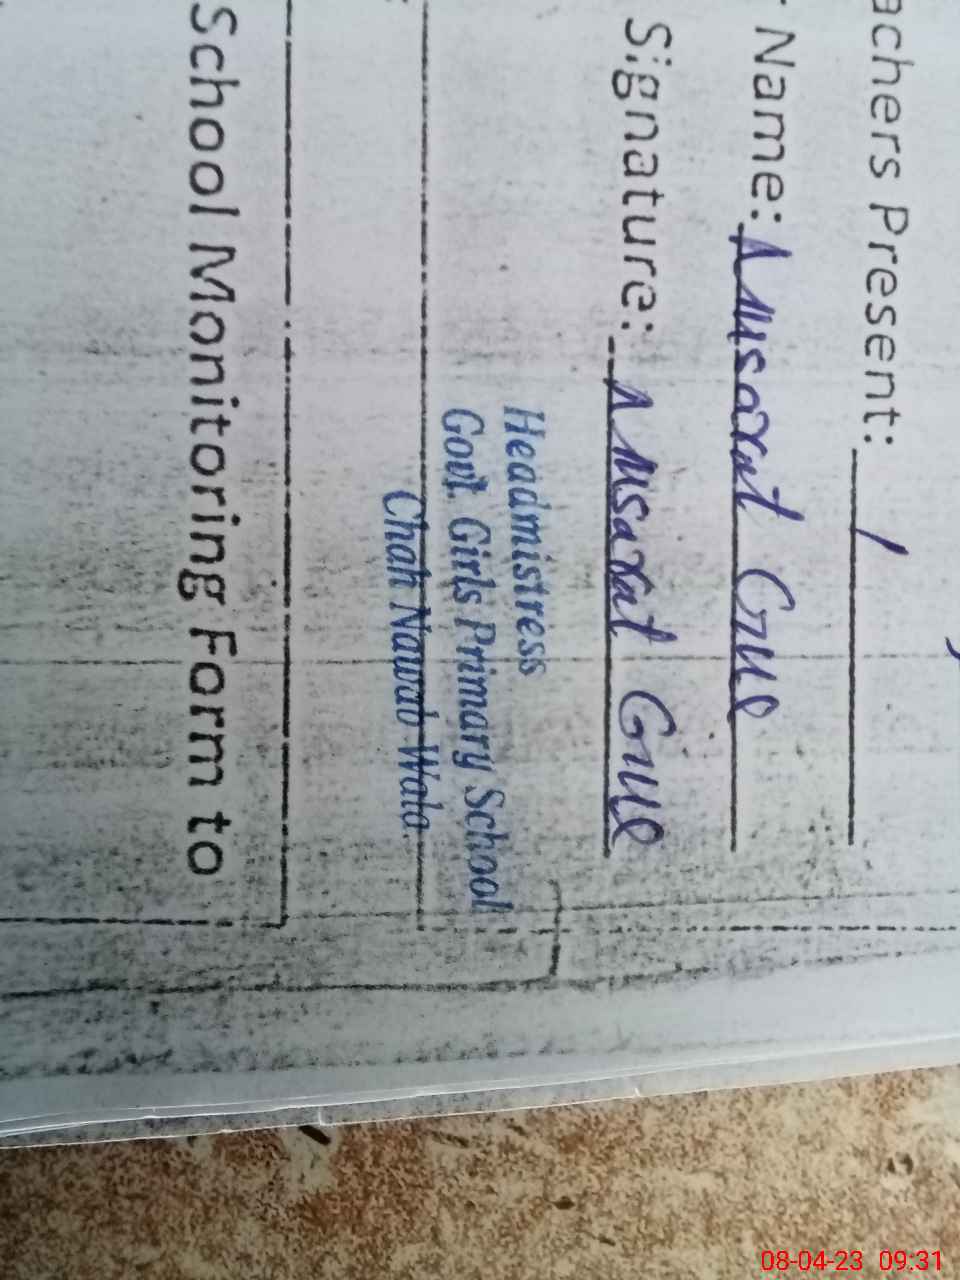 achers Present: 1
Name: Musarat Gul
Signature: Musarat Gul
Headmistress
Govt. Girls Primary School
Chah Nawab Wala.
School Monitoring Form to
08-04-23 09:31